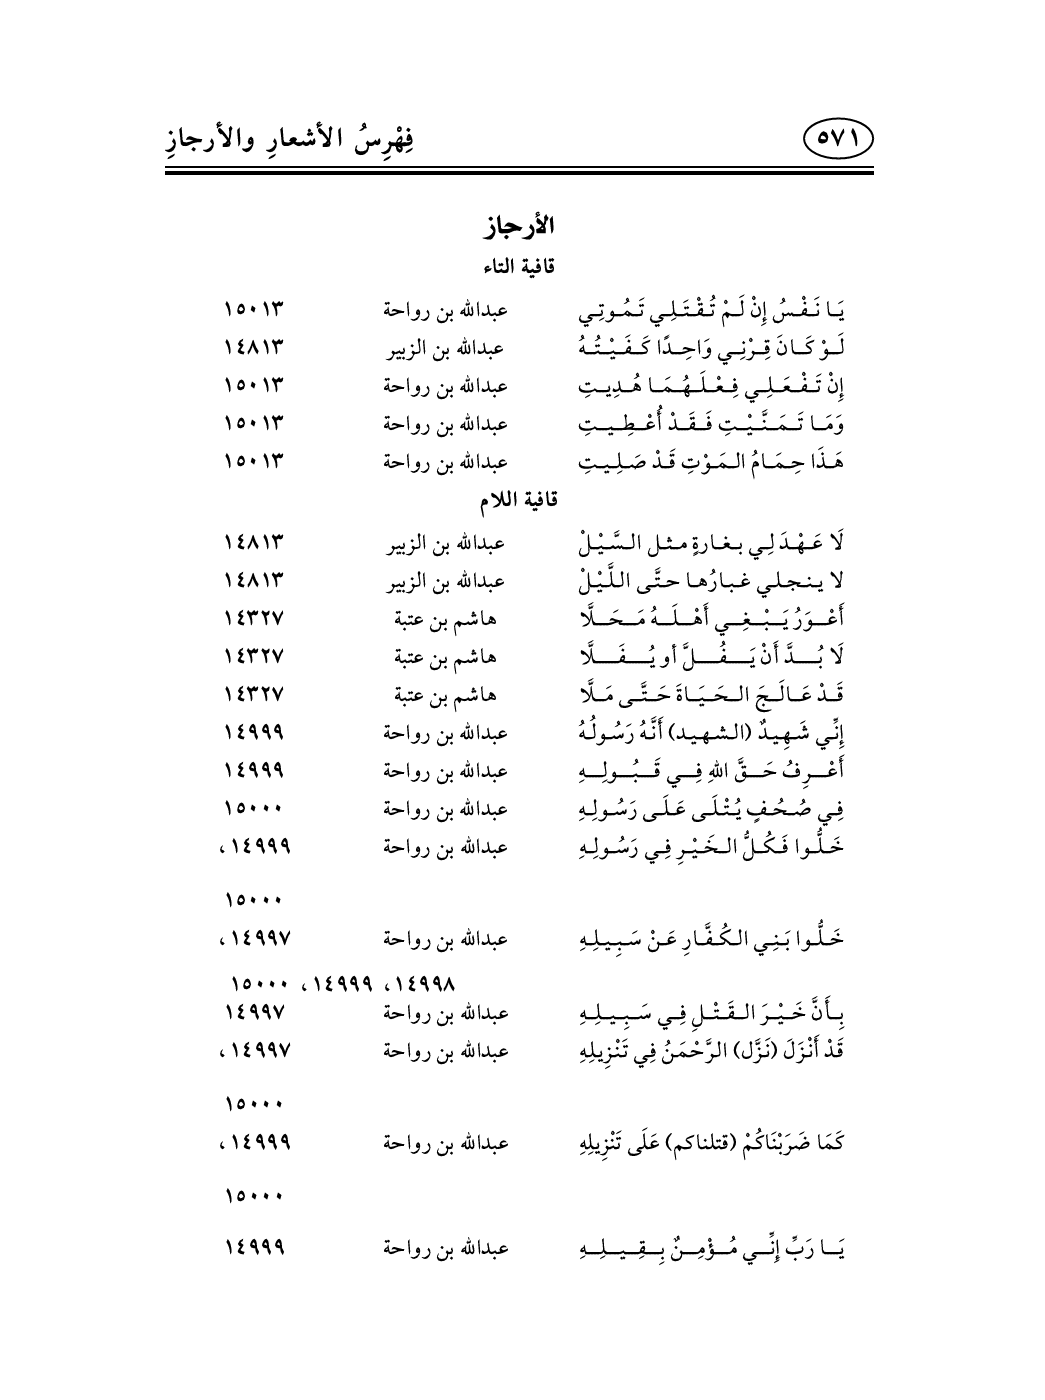 ٥٧١ فِهْرِسُ الأشعارِ والأرجازِ
الأرجاز
قافية التاء
يَا نَفْسُ إِنْ لَمْ تُقْتَلِي تَمُوتِي عبدالله بن رواحة ١٥٠١٣
لَوْ كَانَ قِرْنِي وَاحِدًا كَفَيْتُهُ عبدالله بن الزبير ١٤٨١٣
إِنْ تَفْعَلِي فِعْلَهُمَا هُدِيتِ عبدالله بن رواحة ١٥٠١٣
وَمَا تَمَنَّيْتِ فَقَدْ أُعْطِيتِ عبدالله بن رواحة ١٥٠١٣
هَذَا حِمَامُ المَوْتِ قَدْ صَلِيتِ عبدالله بن رواحة ١٥٠١٣
قافية اللام
لَا عَهْدَ لِي بغارةٍ مثل السَّيْلْ عبدالله بن الزبير ١٤٨١٣
لا ينجلي غبارُها حتَّى اللَّيْلْ عبدالله بن الزبير ١٤٨١٣
أَعْوَرُ يَبْغِي أَهْلَهُ مَحَلَّا هاشم بن عتبة ١٤٣٢٧
لَا بُدَّ أَنْ يَفُلَّ أو يُفَلَّا هاشم بن عتبة ١٤٣٢٧
قَدْ عَالَجَ الحَيَاةَ حَتَّى مَلَّا هاشم بن عتبة ١٤٣٢٧
إِنِّي شَهِيدٌ (الشهيد) أَنَّهُ رَسُولُهُ عبدالله بن رواحة ١٤٩٩٩
أَعْرِفُ حَقَّ اللهِ فِي قَبُولِهِ عبدالله بن رواحة ١٤٩٩٩
فِي صُحُفٍ يُتْلَى عَلَى رَسُولِهِ عبدالله بن رواحة ١٥٠٠٠
خَلُّوا فَكُلُّ الخَيْرِ فِي رَسُولِهِ عبدالله بن رواحة ١٤٩٩٩،
١٥٠٠٠
خَلُّوا بَنِي الكُفَّارِ عَنْ سَبِيلِهِ عبدالله بن رواحة ١٤٩٩٧،
١٤٩٩٨، ١٤٩٩٩، ١٥٠٠٠
بِأَنَّ خَيْرَ القَتْلِ فِي سَبِيلِهِ عبدالله بن رواحة ١٤٩٩٧
قَدْ أَنْزَلَ (نَزَّل) الرَّحْمَنُ فِي تَنْزِيلِهِ عبدالله بن رواحة ١٤٩٩٧،
١٥٠٠٠
كَمَا ضَرَبْنَاكُمْ (قتلناكم) عَلَى تَنْزِيلِهِ عبدالله بن رواحة ١٤٩٩٩،
١٥٠٠٠
يَا رَبِّ إِنِّي مُؤْمِنٌ بِقِيلِهِ عبدالله بن رواحة ١٤٩٩٩